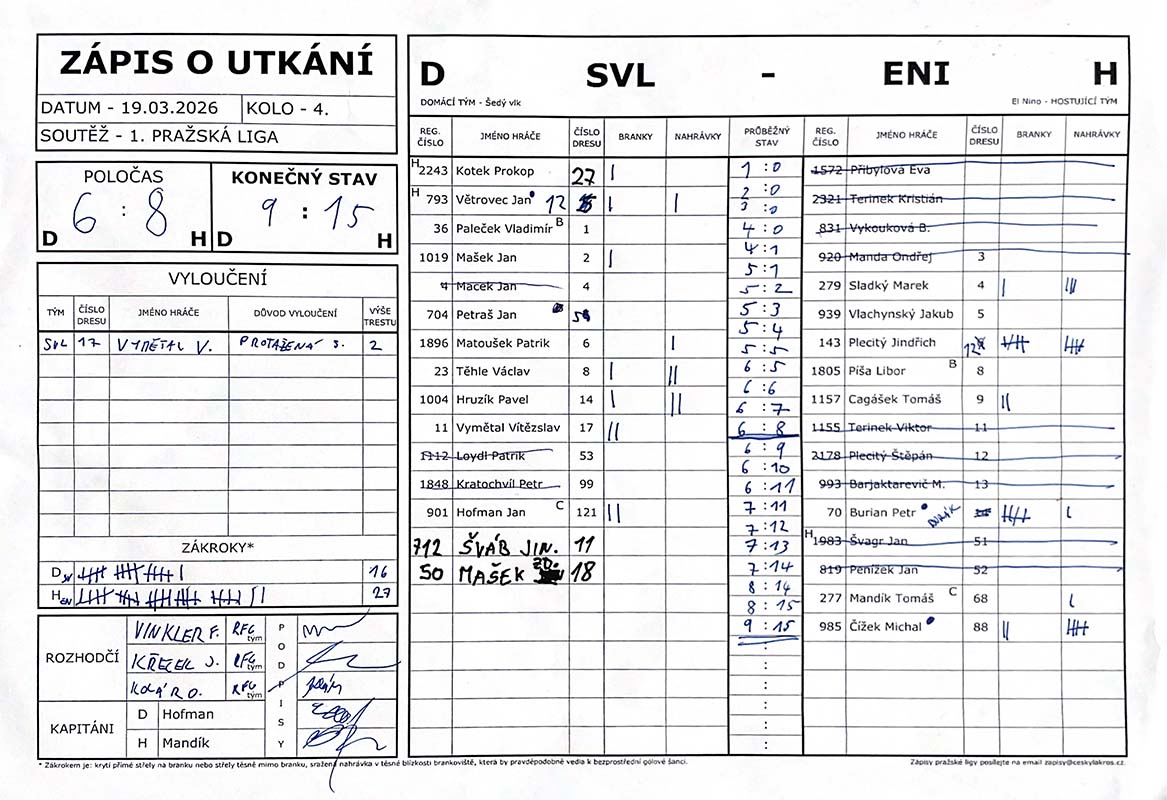 ZÁPIS O UTKÁNÍ
DATUM - 19.03.2026 KOLO - 4.
SOUTĚŽ - 1. PRAŽSKÁ LIGA
POLOČAS
6 : 8
D H
KONEČNÝ STAV
9 : 15
D H
VYLOUČENÍ
TÝM ČÍSLO DRESU JMÉNO HRÁČE DŮVOD VYLOUČENÍ VÝŠE TRESTU
SVL 17 VYMĚTAL V. PROTAŽENÁ S. 2
ZÁKROKY*
D SV 16
H EN 27
ROZHODČÍ
VINKLER F. RFG tým
KŘEČEK J. RFG tým
KOLÁR O. RFG tým
PODPISY
KAPITÁNI
D Hofman
H Mandík
D SVL - ENI H
DOMÁCÍ TÝM - Šedý vlk El Nino - HOSTUJÍCÍ TÝM
REG. ČÍSLO JMÉNO HRÁČE ČÍSLO DRESU BRANKY NAHRÁVKY PRŮBĚŽNÝ STAV REG. ČÍSLO JMÉNO HRÁČE ČÍSLO DRESU BRANKY NAHRÁVKY
H 2243 Kotek Prokop 27 I
H 793 Větrovec Jan 12 I I
36 Paleček Vladimír B 1
1019 Mašek Jan 2 I
4 Macek Jan 4
704 Petraš Jan
1896 Matoušek Patrik 6 I
23 Těhle Václav 8 I II
1004 Hruzík Pavel 14 I II
11 Vymětal Vítězslav 17 II
1112 Loydl Patrik 53
1848 Kratochvíl Petr 99
901 Hofman Jan C 121 II
712 ŠVÁB JIN. 11
50 MAŠEK ZD. 18
1 : 0
2 : 0
3 : 0
4 : 0
4 : 1
5 : 1
5 : 2
5 : 3
5 : 4
5 : 5
6 : 5
6 : 6
6 : 7
6 : 8
6 : 9
6 : 10
6 : 11
7 : 11
7 : 12
7 : 13
7 : 14
8 : 14
8 : 15
9 : 15
1572 Přibylova Eva
2321 Terinek Kristián
831 Vykouková B.
920 Manda Ondřej 3
279 Sladký Marek 4 I III
939 Vlachynský Jakub 5
143 Plecitý Jindřich 12
1805 Píša Libor B 8
1157 Cagášek Tomáš 9 II
1155 Terinek Viktor 11
2178 Plecitý Štěpán 12
993 Barjaktarevič M. 13
70 Burian Petr I
H 1983 Švagr Jan 51
819 Penížek Jan 52
277 Mandík Tomáš C 68 I
985 Čížek Michal 88 II
* Zákrokem je: krytí přímé střely na branku nebo střely těsně mimo branku, sražená nahrávka v těsné blízkosti brankoviště, která by pravděpodobně vedla k bezprostřední gólové šanci.
Zápisy pražské ligy posílejte na email zapisy@ceskylakros.cz.